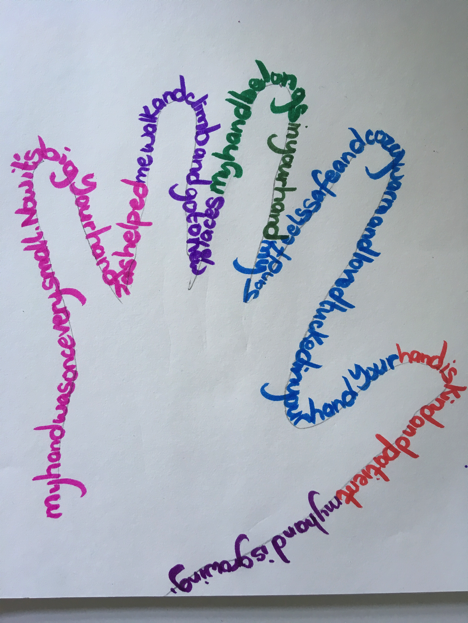 myhandwasonceverysmall.Nowit's
big.
Yourhand
hashelpedmewalkand
climbandgoto
myhandbelongsinyourhand
safeand
cosywarmandlovedtuckedin
hand.is
kindandpatient
myhandisgrowing.